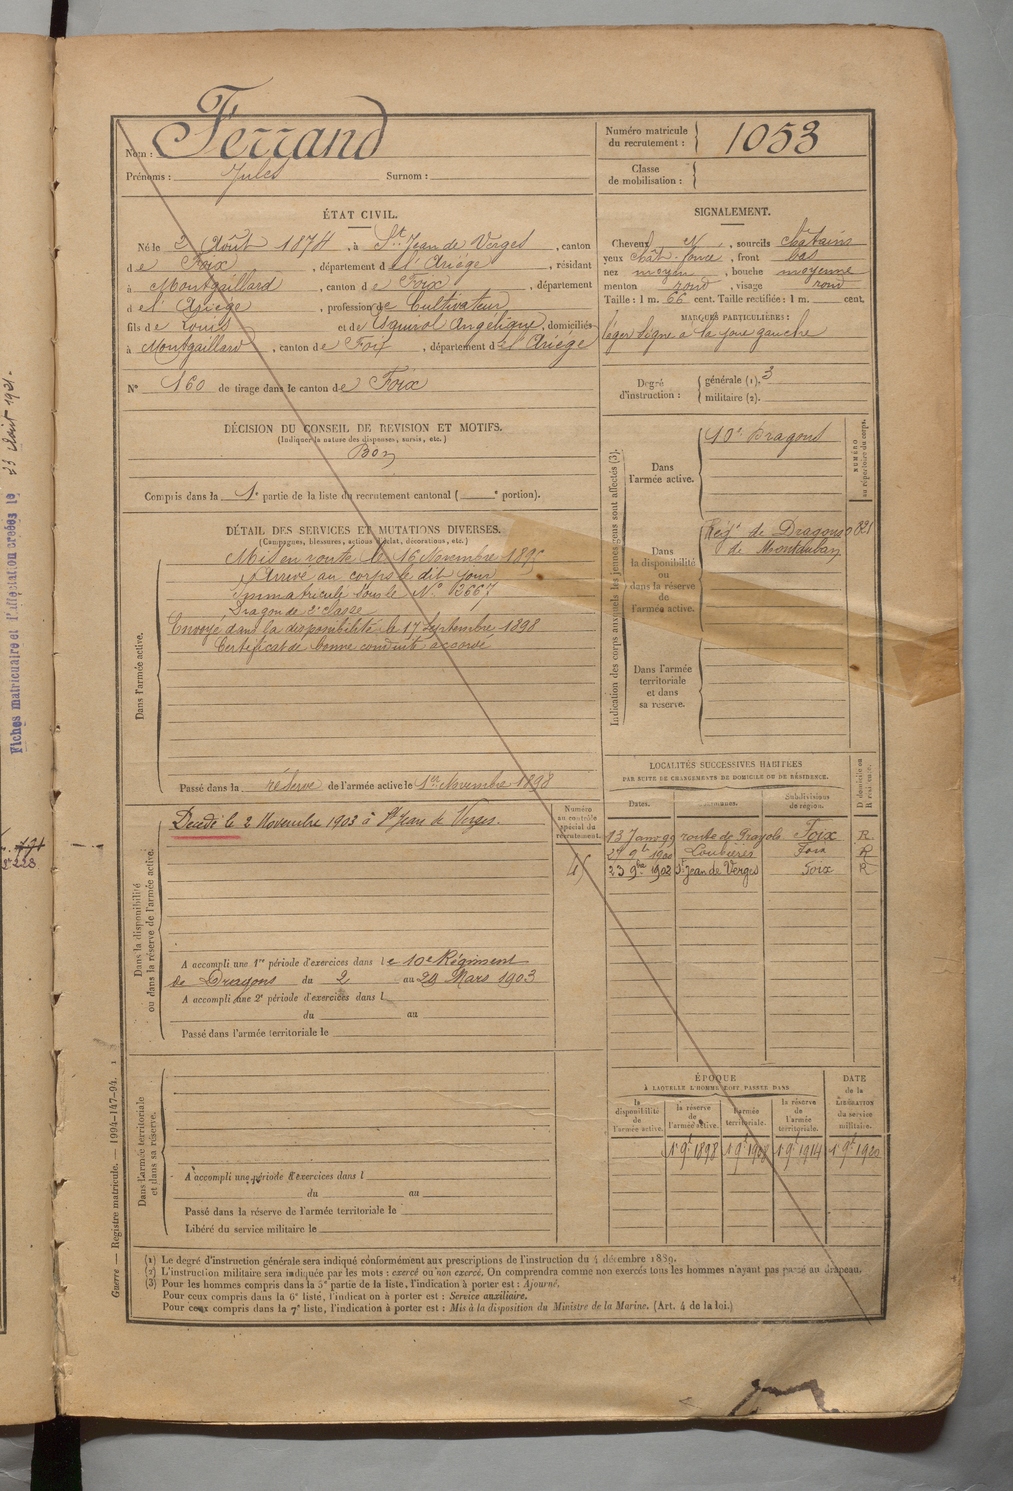 Nom : Ferrand
Prénoms : Jules Surnom :
Numéro matricule du recrutement : 1053
Classe de mobilisation :
ÉTAT CIVIL.
Né le 2 Août 1874, à St. Jean de Verges, canton
de Foix, département de l'Ariège, résidant
à Montgaillard, canton de Foix, département
de l'Ariège, profession de Cultivateur
fils de Louis et de Esquirol Angélique, domiciliés
à Montgaillard, canton de Foix, département de l'Ariège
N° 160 de tirage dans le canton de Foix
SIGNALEMENT.
Cheveux N, sourcils châtains
yeux chât. foncé, front bas
nez moyen, bouche moyenne
menton rond, visage rond
Taille : 1 m. 66 cent. Taille rectifiée : 1 m. cent.
MARQUES PARTICULIÈRES :
léger signe a la joue gauche
Degré d'instruction :
générale (1). 3
militaire (2).
DÉCISION DU CONSEIL DE REVISION ET MOTIFS.
(Indiquer la nature des dispenses, sursis, etc.)
Bon
Compris dans la 1e partie de la liste du recrutement cantonal ( e portion).
DÉTAIL DES SERVICES ET MUTATIONS DIVERSES.
(Campagnes, blessures, actions d'éclat, décorations, etc.)
Dans l'armée active.
Mis en route le 16 Novembre 1895
Arrivé au corps le dit jour
Immatriculé sous le N° 3667
Dragon de 2e classe
Envoyé dans la disponibilité le 17 Septembre 1898
Certificat de bonne conduite accordé
Passé dans la réserve de l'armée active le 1er Novembre 1898
Indication des corps auxquels les jeunes gens sont affectés (3).
NUMÉRO au répertoire du corps.
Dans l'armée active.
10e Dragons
Dans la disponibilité ou dans la réserve de l'armée active.
Régt de Dragons
de Montauban
Dans l'armée territoriale et dans sa réserve.
LOCALITÉS SUCCESSIVES HABITÉES
PAR SUITE DE CHANGEMENTS DE DOMICILE OU DE RÉSIDENCE.
Dates. Communes. Subdivisions de région. D domicile ou R résidence.
13 Janv 99 route de Prayols Foix R
27 9b 1900 Loubières Foix R
23 9bre 1902 St Jean de Verges Foix R
Dans la disponibilité ou dans la réserve de l'armée active.
Numéro au contrôle spécial du recrutement.
Décédé le 2 Novembre 1903 à St Jean de Verges.
A accompli une 1re période d'exercices dans le 10e Régiment
de Dragons du 2 au 29 Mars 1903
A accompli une 2e période d'exercices dans l
du au
Passé dans l'armée territoriale le
Dans l'armée territoriale et dans sa réserve.
A accompli une période d'exercices dans l
du au
Passé dans la réserve de l'armée territoriale le
Libéré du service militaire le
ÉPOQUE
À LAQUELLE L'HOMME DOIT PASSER DANS
la disponibilité de l'armée active. la réserve de l'armée active. l'armée territoriale. la réserve de l'armée territoriale.
DATE de la LIBÉRATION du service militaire.
1 9b 1898 1 9b 1908 1 9b 1914 1 9b 1920
(1) Le degré d'instruction générale sera indiqué conformément aux prescriptions de l'instruction du 4 décembre 1889.
(2) L'instruction militaire sera indiquée par les mots : exercé ou non exercé. On comprendra comme non exercés tous les hommes n'ayant pas passé au drapeau.
(3) Pour les hommes compris dans la 5e partie de la liste, l'indication à porter est : Ajourné.
Pour ceux compris dans la 6e liste, l'indication à porter est : Service auxiliaire.
Pour ceux compris dans la 7e liste, l'indication à porter est : Mis à la disposition du Ministre de la Marine. (Art. 4 de la loi.)
Guerre — Registre matricule. — 1994-147-94.